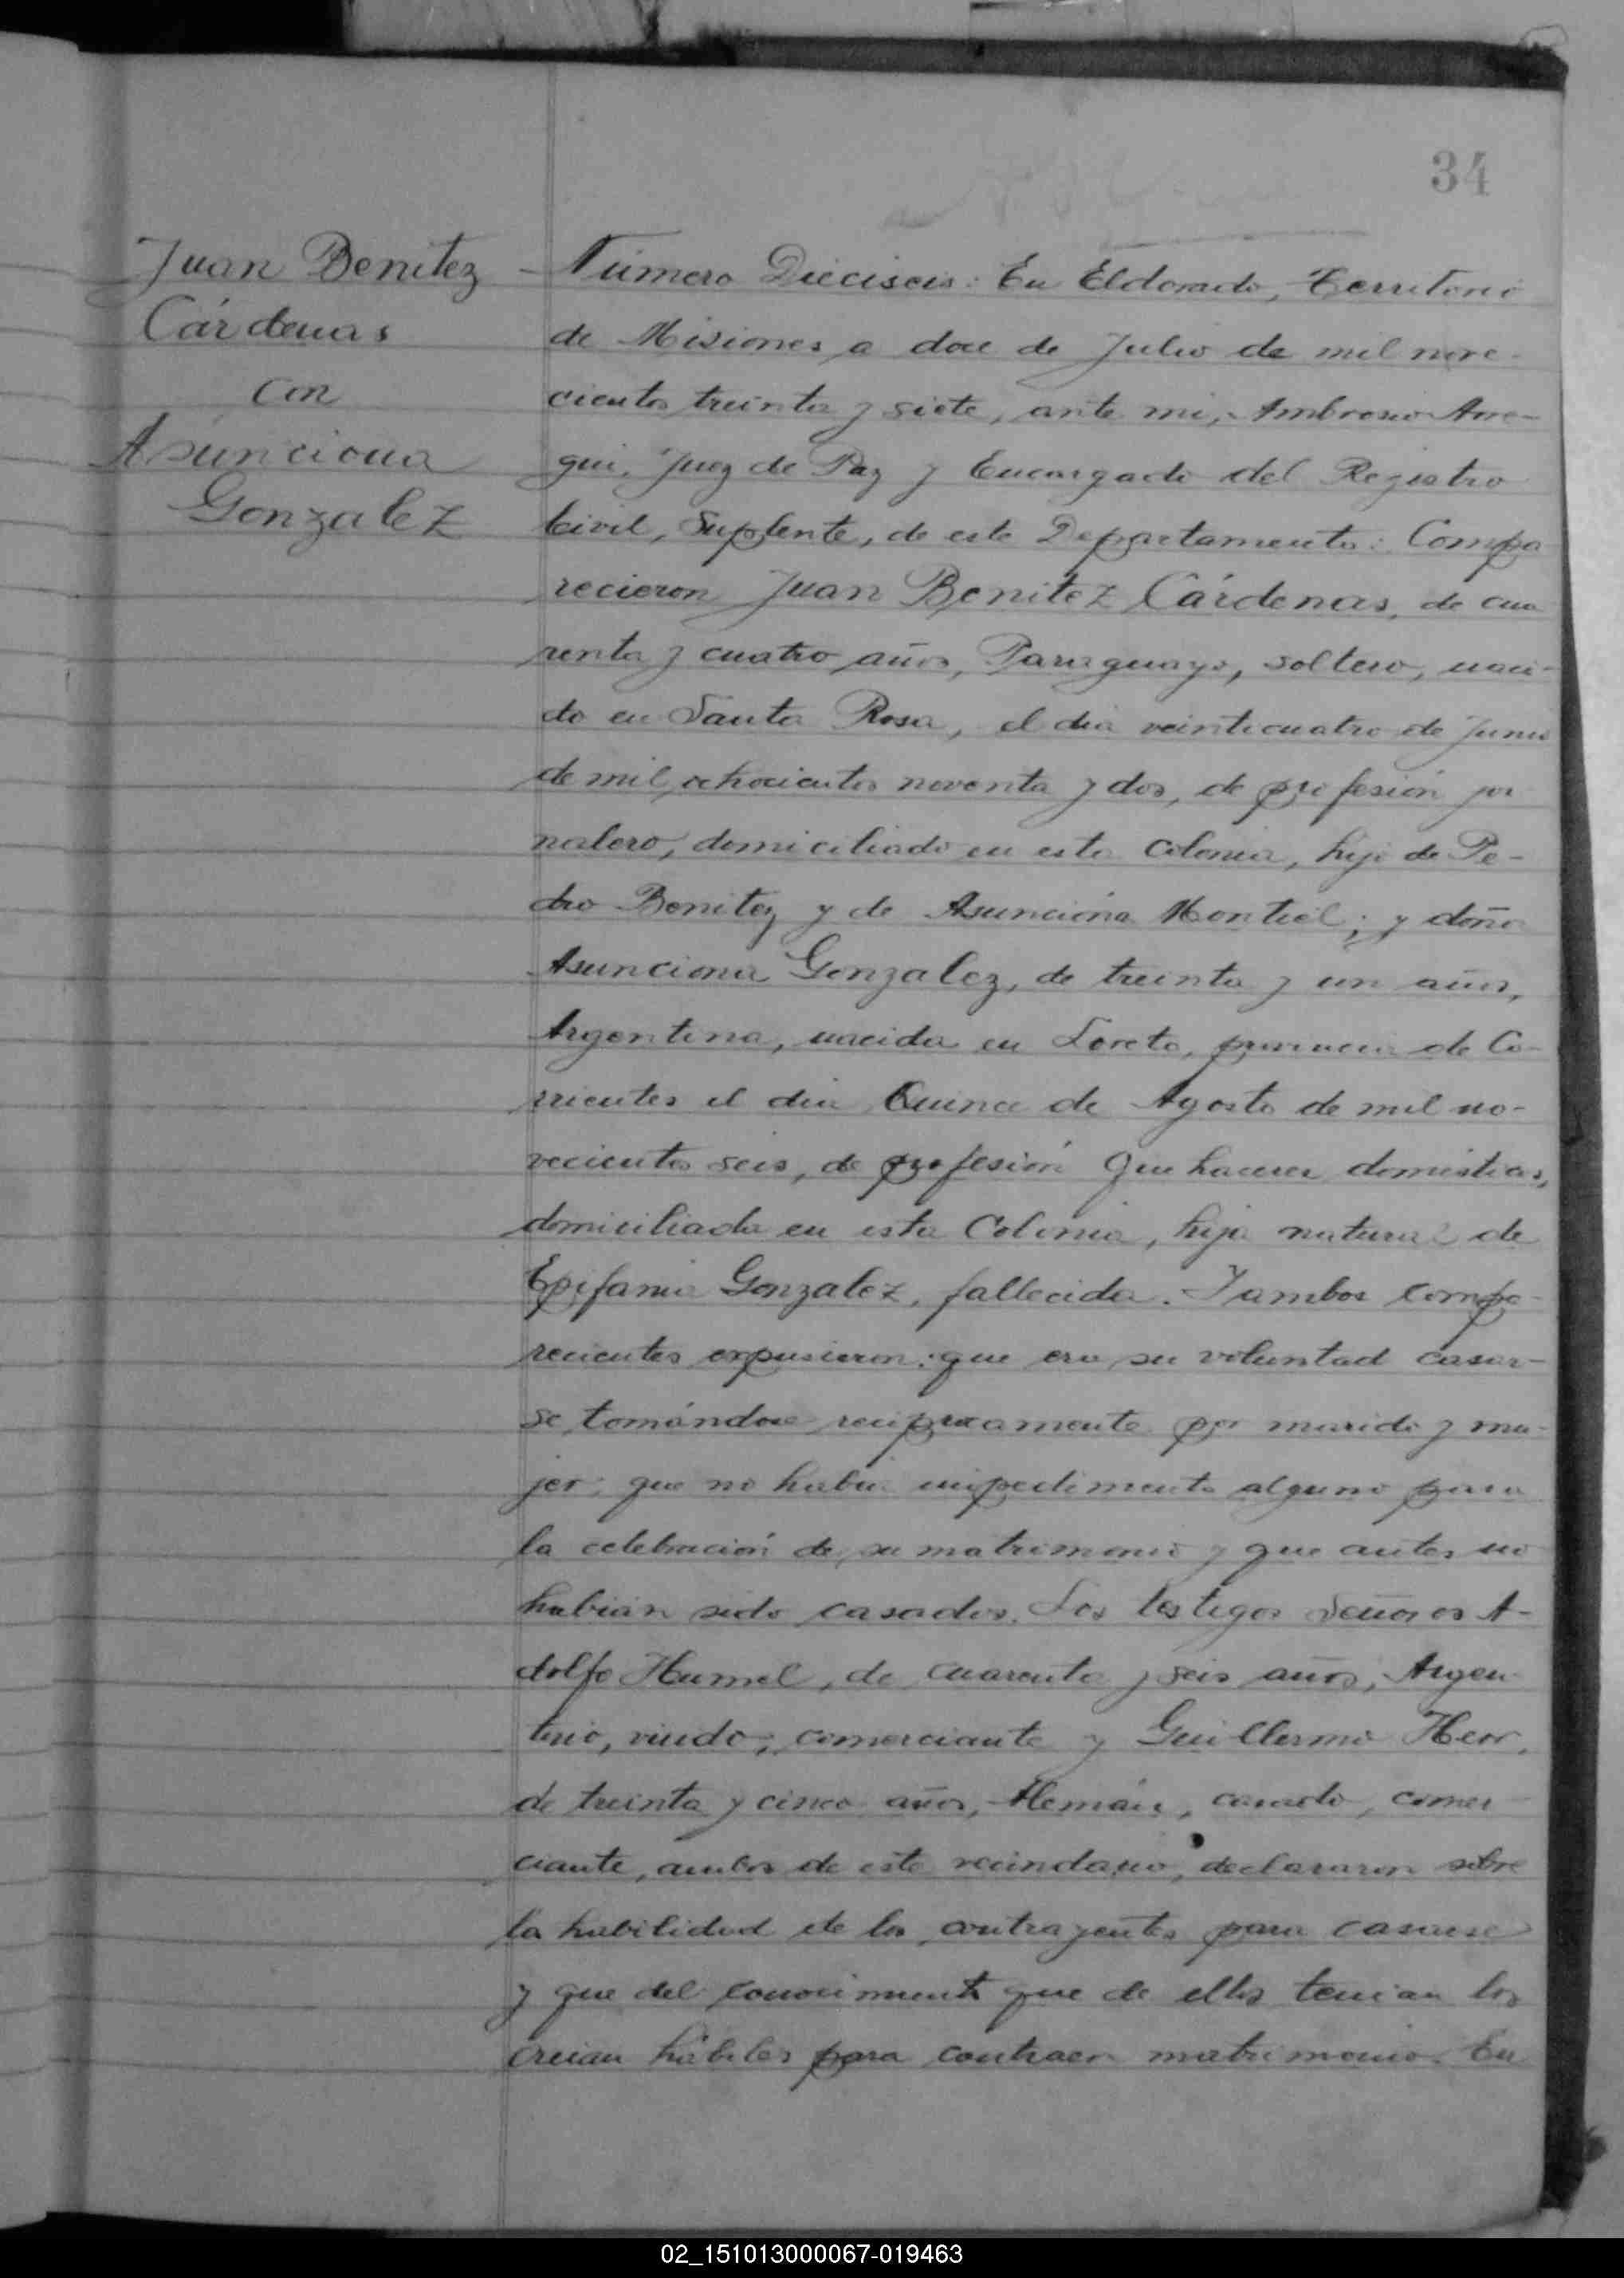 34
Juan Benitez
Cárdenas
con
Asunciona
Gonzalez
Número Dieciseis: En Eldorado, Territorio
de Misiones a doce de Julio de mil nove-
cientos treinta y siete, ante mi, Ambrosio Arre-
gui, Juez de Paz y Encargado del Registro
Civil, Suplente, de este Departamento: Compa
recieron Juan Benitez Cárdenas, de cua
renta y cuatro años, Paraguayo, soltero, naci-
do en Santa Rosa, el dia veinticuatro de Junio
de mil ochocientos noventa y dos, de profesión jor
nalero, domiciliado en esta Colonia, hijo de Pe-
dro Benitez y de Asunciona Montiel; y doña
Asunciona Gonzalez, de treinta y un años,
Argentina, nacida en Loreto, provincia de Co-
rrientes el dia Quince de Agosto de mil no-
vecientos seis, de profesión Que haceres domésticos,
domiciliada en esta Colonia, hija natural de
Epifania Gonzalez, fallecida. Y ambos compa-
recientes expusieron: que era su voluntad casar-
se, tomándose reciprocamente por marido y mu-
jer; que no habia impedimento alguno para
la celebración de su matrimonio y que antes no
habian sido casados. Los testigos Señores A-
dolfo Humel, de cuarenta y seis años, Argen-
tino, viudo, comerciante y Guillermo
de treinta y cinco años, Alemán, casado, comer-
ciante, ambos de este vecindario, declararon sobre
la habilidad de los contrayentes para casarse
y que del conocimiento que de ellos tenian los
creian hábiles para contraer matrimonio. En
02_151013000067-019463